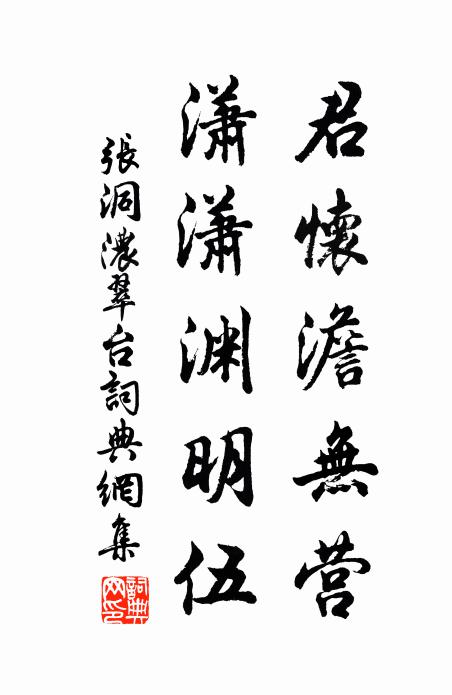 君懷澹無营
瀟瀟渊明伍
張洞濃翠台詞典網集
詞典網印